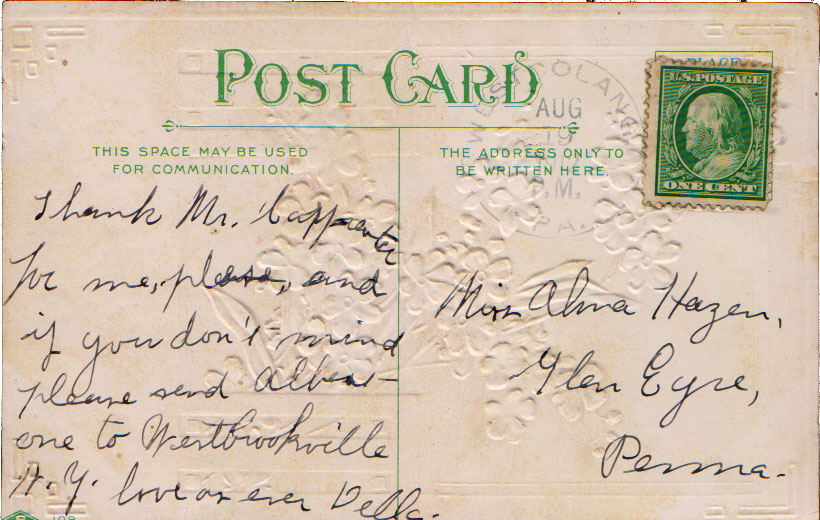 POST CARD
THIS SPACE MAY BE USED
FOR COMMUNICATION.
THE ADDRESS ONLY TO
BE WRITTEN HERE.
PLACE
U.S. POSTAGE
ONE CENT
WEST COLANG
AUG
19
.M.
PA.
Thank Mr. Cappenter
for me, please, and
if you don't mind
please send Albert
one to Westbrookville
N.Y. love as ever Della.
Miss Alma Hazen,
Glen Eyre,
Penna.
108